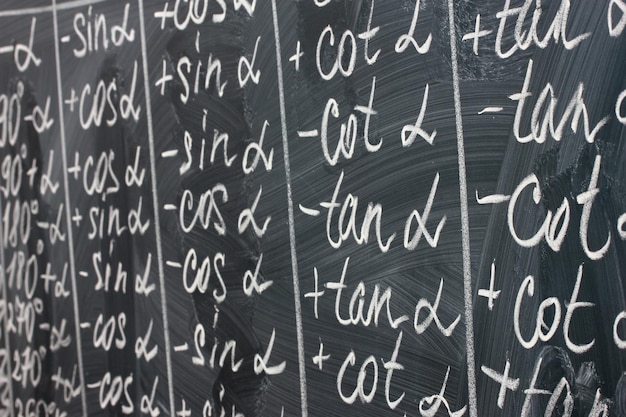 -α -sin α +cos α
90°-α +cos α +sin α +cot α +tan α
90°+α +cos α -sin α -cot α -tan α
180°-α +sin α -cos α -tan α -cot α
180°+α -sin α -cos α +tan α +cot α
270°-α -cos α -sin α +cot α +tan
270°+α -cos α